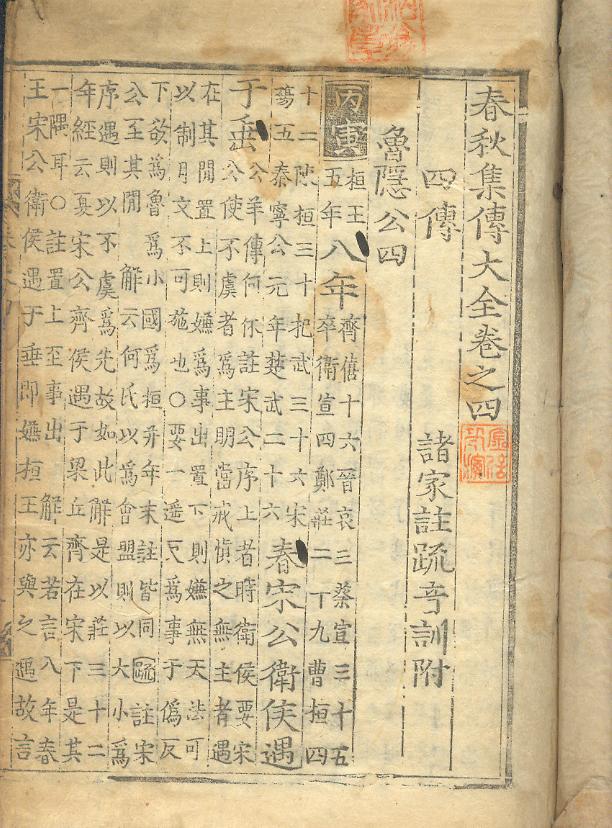 春秋集傳大全卷之四
四傳　諸家註疏音訓附
魯隱公四
丙寅
桓王
五年
八年
齊僖十六晉哀三蔡宣三十五
卒衛宣四鄭莊二十九曹桓四
十二陳桓三十杞武三十六宋
殤五秦寧公元年楚武二十六
春宋公衛侯遇
于垂
公羊傳何休註宋公序上者時衛侯要宋
公使不虞者爲主明當戒愼之無主者遇
在其閒置上則嫌爲事出置下則嫌無天法可
以制月文不可施也○要一遥反爲事于僞反
下欲爲魯爲小國爲桓弁年末註皆同疏註宋
公至其閒　解云何氏以爲會盟則以大小爲
序遇則以不虞爲先故如此解是以莊三十二
年經云夏宋公齊侯遇于梁丘齊在宋下是其
一隅耳○註置上至事出　解云若言八年春
王宋公衛侯遇于垂即嫌桓王亦與之遇故言